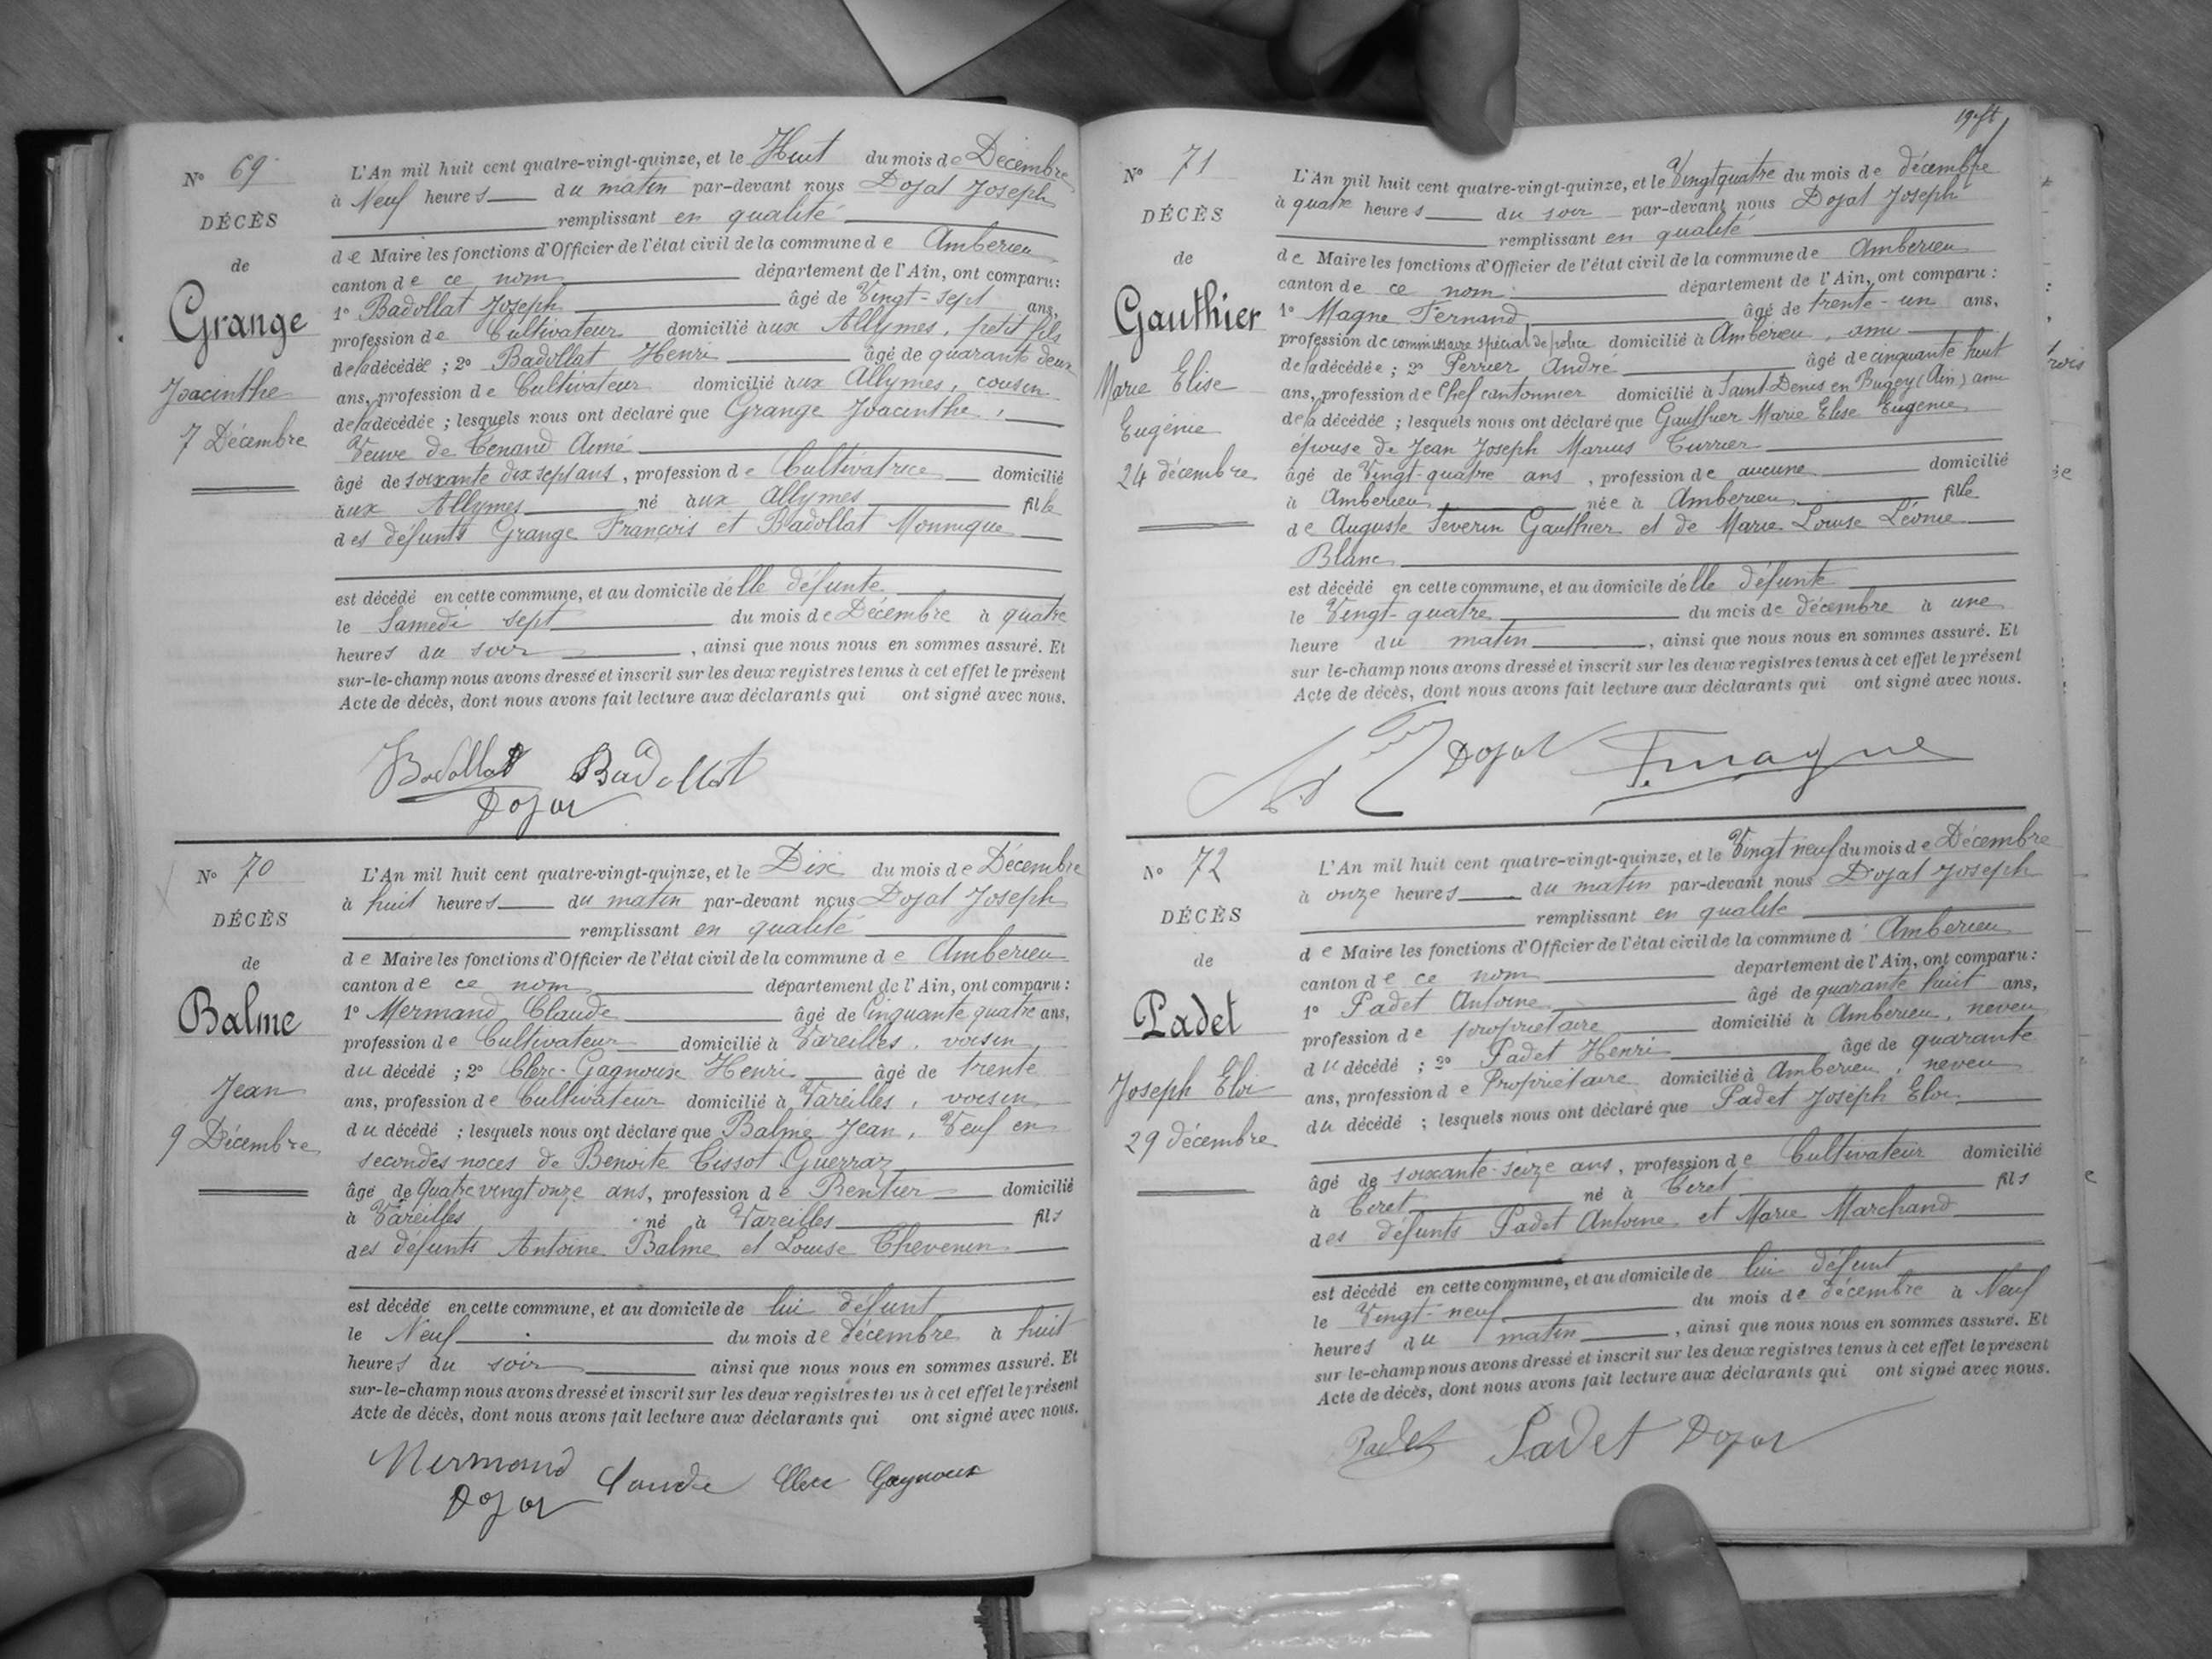 Nº 69
DÉCÈS
de
Grange
Joacinthe
7 Décembre
L'An mil huit cent quatre-vingt-quinze, et le Huit du mois de Décembre
à Neuf heures du matin par-devant nous Dojat Joseph
remplissant en qualité
de Maire les fonctions d'Officier de l'état civil de la commune de Amberieu
canton de ce nom département de l'Ain, ont comparu :
1º Badollat Joseph âgé de Vingt-sept ans,
profession de Cultivateur domicilié aux Allymes, petit fils
de la décédée ; 2º Badollat Henri âgé de quarante deux
ans, profession de Cultivateur domicilié aux Allymes, cousin
de la décédée ; lesquels nous ont déclaré que Grange Joacinthe,
Veuve de Tenand Aimé
âgé de soixante dix sept ans, profession de Cultivatrice domicilié
aux Allymes né aux Allymes fille
des défunts Grange François et Badollat Monnique
est décédé en cette commune, et au domicile d'elle défunte
le Samedi sept du mois de Décembre à quatre
heures du soir, ainsi que nous nous en sommes assuré. Et
sur-le-champ nous avons dressé et inscrit sur les deux registres tenus à cet effet le présent
Acte de décès, dont nous avons fait lecture aux déclarants qui ont signé avec nous.
Badollat Badollat
Dojat
Nº 70
DÉCÈS
de
Balme
Jean
9 Décembre
L'An mil huit cent quatre-vingt-quinze, et le Dix du mois de Décembre
à huit heures du matin par-devant nous Dojat Joseph
remplissant en qualité
de Maire les fonctions d'Officier de l'état civil de la commune de Amberieu
canton de ce nom département de l'Ain, ont comparu :
1º Mermand Claude âgé de Cinquante quatre ans,
profession de Cultivateur domicilié à Vareilles, voisin
du décédé ; 2º Clerc-Gagnoux Henri âgé de trente
ans, profession de Cultivateur domicilié à Vareilles, voisin
du décédé ; lesquels nous ont déclaré que Balme Jean, Veuf en
secondes noces de Benoite Tissot Guerraz
âgé de Quatre vingt onze ans, profession de Rentier domicilié
à Vareilles né à Vareilles fils
des défunts Antoine Balme et Louise Chevenin
est décédé en cette commune, et au domicile de lui défunt
le Neuf du mois de décembre à huit
heures du soir ainsi que nous nous en sommes assuré. Et
sur-le-champ nous avons dressé et inscrit sur les deux registres tenus à cet effet le présent
Acte de décès, dont nous avons fait lecture aux déclarants qui ont signé avec nous.
Mermand Claude Clerc Gagnoux
Dojat
Nº 71
DÉCÈS
de
Gauthier
Marie Elise
Eugénie
24 décembre
L'An mil huit cent quatre-vingt-quinze, et le Vingt quatre du mois de décembre
à quatre heures du soir par-devant nous Dojat Joseph
remplissant en qualité
de Maire les fonctions d'Officier de l'état civil de la commune de Amberieu
canton de ce nom département de l'Ain, ont comparu :
1º Magne Fernand âgé de trente-un ans,
profession de commissaire spécial de police domicilié à Amberieu, ami
de la décédée ; 2º Perrier André âgé de cinquante huit
ans, profession de Chef cantonnier domicilié à Saint Denis en Bugey (Ain) ami
de la décédée ; lesquels nous ont déclaré que Gauthier Marie Elise Eugénie
épouse de Jean Joseph Marius Turrier
âgé de Vingt-quatre ans, profession de aucune domicilié
à Amberieu née à Amberieu fille
de Auguste Severin Gauthier et de Marie Louise Léonie
Blanc
est décédé en cette commune, et au domicile d'elle défunte
le Vingt-quatre du mois de décembre à une
heure du matin, ainsi que nous nous en sommes assuré. Et
sur le-champ nous avons dressé et inscrit sur les deux registres tenus à cet effet le présent
Acte de décès, dont nous avons fait lecture aux déclarants qui ont signé avec nous.
Dojat F. magne
Nº 72
DÉCÈS
de
Padet
Joseph Eloi
29 décembre
L'An mil huit cent quatre-vingt-quinze, et le Vingt neuf du mois de Décembre
à onze heures du matin par-devant nous Dojat Joseph
remplissant en qualité
de Maire les fonctions d'Officier de l'état civil de la commune d' Amberieu
canton de ce nom département de l'Ain, ont comparu :
1º Padet Antoine âgé de quarante huit ans,
profession de propriétaire domicilié à Amberieu, neveu
du décédé ; 2º Padet Henri âgé de quarante
ans, profession de Propriétaire domicilié à Amberieu, neveu
du décédé ; lesquels nous ont déclaré que Padet Joseph Eloi
âgé de soixante-seize ans, profession de Cultivateur domicilié
à Tiret né à Tiret fils
des défunts Padet Antoine et Marie Marchand
est décédé en cette commune, et au domicile de lui défunt
le Vingt-neuf du mois de décembre à Neuf
heures du matin, ainsi que nous nous en sommes assuré. Et
sur le-champ nous avons dressé et inscrit sur les deux registres tenus à cet effet le présent
Acte de décès, dont nous avons fait lecture aux déclarants qui ont signé avec nous.
Padet Padet Dojat